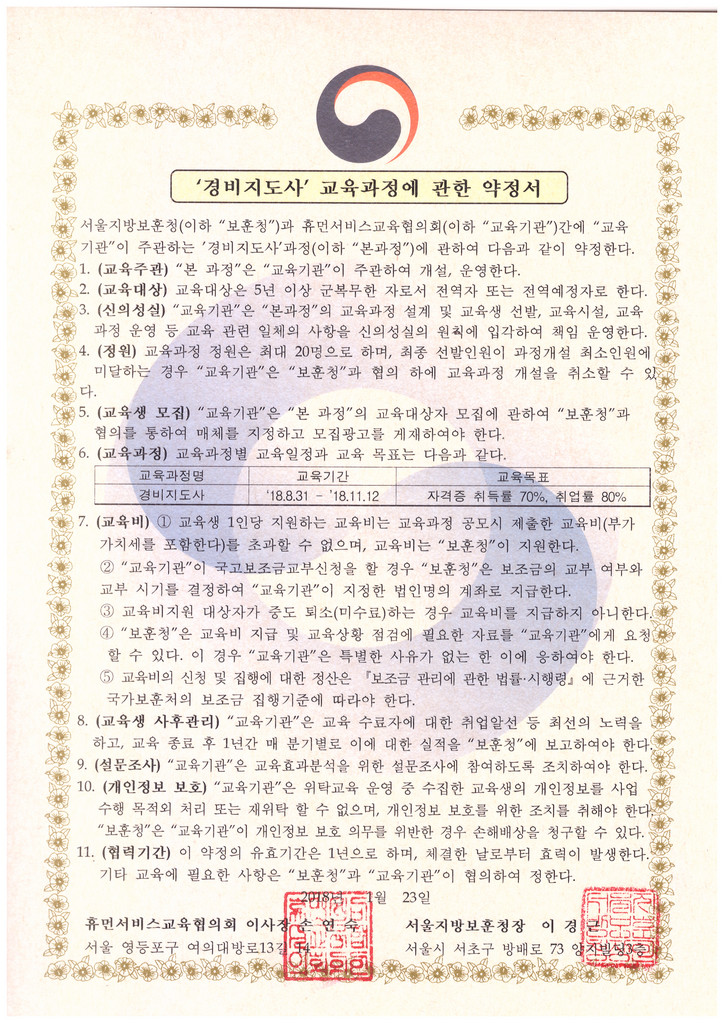 '경비지도사' 교육과정에 관한 약정서
서울지방보훈청(이하 “보훈청”)과 휴먼서비스교육협의회(이하 “교육기관”)간에 “교육
기관”이 주관하는 '경비지도사'과정(이하 “본과정”)에 관하여 다음과 같이 약정한다.
1. (교육주관) “본 과정”은 “교육기관”이 주관하여 개설, 운영한다.
2. (교육대상) 교육대상은 5년 이상 군복무한 자로서 전역자 또는 전역예정자로 한다.
3. (신의성실) “교육기관”은 “본과정”의 교육과정 설계 및 교육생 선발, 교육시설, 교육
과정 운영 등 교육 관련 일체의 사항을 신의성실의 원칙에 입각하여 책임 운영한다.
4. (정원) 교육과정 정원은 최대 20명으로 하며, 최종 선발인원이 과정개설 최소인원에
미달하는 경우 “교육기관”은 “보훈청”과 협의 하에 교육과정 개설을 취소할 수 있
다.
5. (교육생 모집) “교육기관”은 “본 과정”의 교육대상자 모집에 관하여 “보훈청”과
협의를 통하여 매체를 지정하고 모집광고를 게재하여야 한다.
6. (교육과정) 교육과정별 교육일정과 교육 목표는 다음과 같다.
교육과정명 교육기간 교육목표
경비지도사 '18.8.31 - '18.11.12 자격증 취득률 70%, 취업률 80%
7. (교육비) ① 교육생 1인당 지원하는 교육비는 교육과정 공모시 제출한 교육비(부가
가치세를 포함한다)를 초과할 수 없으며, 교육비는 “보훈청”이 지원한다.
② “교육기관”이 국고보조금교부신청을 할 경우 “보훈청”은 보조금의 교부 여부와
교부 시기를 결정하여 “교육기관”이 지정한 법인명의 계좌로 지급한다.
③ 교육비지원 대상자가 중도 퇴소(미수료)하는 경우 교육비를 지급하지 아니한다.
④ “보훈청”은 교육비 지급 및 교육상황 점검에 필요한 자료를 “교육기관”에게 요청
할 수 있다. 이 경우 “교육기관”은 특별한 사유가 없는 한 이에 응하여야 한다.
⑤ 교육비의 신청 및 집행에 대한 정산은 『보조금 관리에 관한 법률·시행령』에 근거한
국가보훈처의 보조금 집행기준에 따라야 한다.
8. (교육생 사후관리) “교육기관”은 교육 수료자에 대한 취업알선 등 최선의 노력을
하고, 교육 종료 후 1년간 매 분기별로 이에 대한 실적을 “보훈청”에 보고하여야 한다.
9. (설문조사) “교육기관”은 교육효과분석을 위한 설문조사에 참여하도록 조치하여야 한다.
10. (개인정보 보호) “교육기관”은 위탁교육 운영 중 수집한 교육생의 개인정보를 사업
수행 목적외 처리 또는 재위탁 할 수 없으며, 개인정보 보호를 위한 조치를 취해야 한다.
“보훈청”은 “교육기관이 개인정보 보호 의무를 위반한 경우 손해배상을 청구할 수 있다.
11. (협력기간) 이 약정의 유효기간은 1년으로 하며, 체결한 날로부터 효력이 발생한다.
기타 교육에 필요한 사항은 “보훈청”과 “교육기관”이 협의하여 정한다.
2018년 1월 23일
휴먼서비스교육협의회 이사장 손 연 숙
서울지방보훈청장 이 경 근
서울 영등포구 여의대방로13길
서울시 서초구 방배로 73